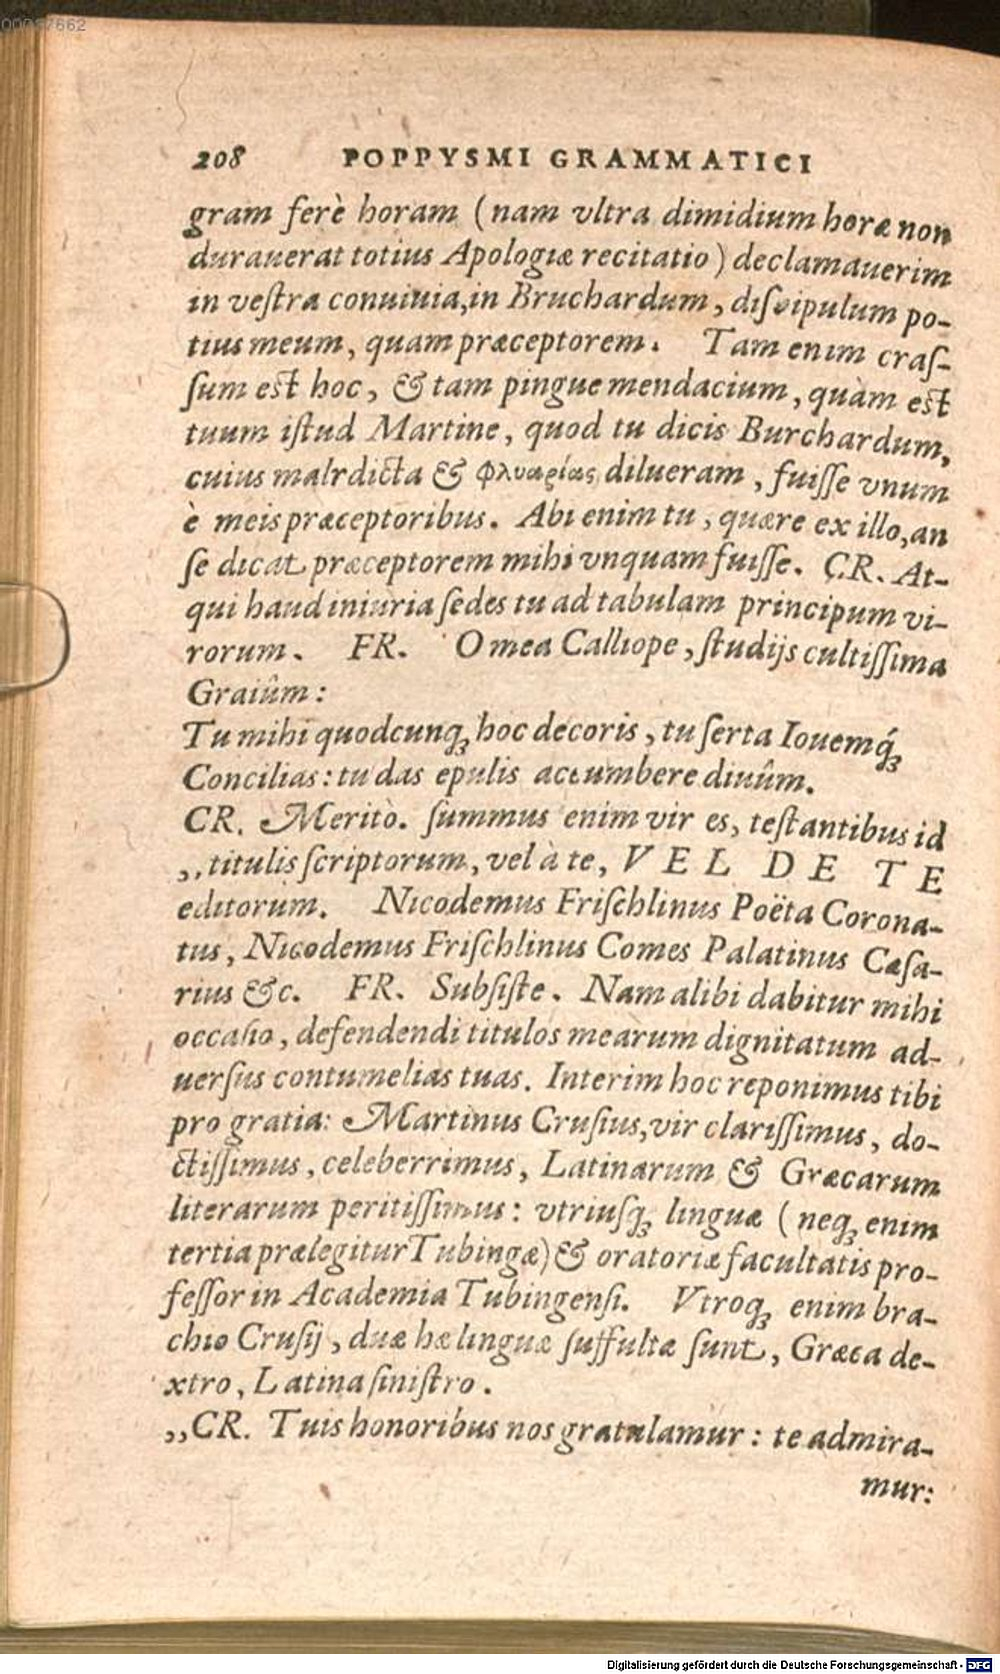 00037662
208 POPPYSMI GRAMMATICI
gram ferè horam (nam vltra dimidium horæ non
durauerat totius Apologiæ recitatio) declamauerim
in vestra conuiuia,in Bruchardum, discipulum po-
tius meum, quam præceptorem. Tam enim cras-
sum est hoc, & tam pingue mendacium, quam est
tuum istud Martine, quod tu dicis Burchardum,
cuius malrdicta & φλυαρίας dilueram, fuisse vnum
è meis præceptoribus. Abi enim tu, quære ex illo, an
se dicat præceptorem mihi vnquam fuisse. CR. At-
qui haud iniuria sedes tu ad tabulam principum vi-
rorum. FR. O mea Calliope, studijs cultissima
Graiûm:
Tu mihi quodcunq; hoc decoris, tu serta Iouemq́;
Concilias: tu das epulis accumbere diuûm.
CR. Meritò. summus enim vir es, testantibus id
,,titulis scriptorum, vel à te, VEL DE TE
editorum. Nicodemus Frischlinus Poëta Corona-
tus, Nicodemus Frischlinus Comes Palatinus Cæsa-
rius &c. FR. Subsiste. Nam alibi dabitur mihi
occasio, defendendi titulos mearum dignitatum ad-
uersus contumelias tuas. Interim hoc reponimus tibi
pro gratia: Martinus Crusius,vir clarissimus, do-
ctissimus, celeberrimus, Latinarum & Græcarum
literarum peritissimus: vtriusq; linguæ (neq; enim
tertia prælegitur Tubingæ) & oratoriæ facultatis pro-
fessor in Academia Tubingensi. Vtroq; enim bra-
chio Crusij, duæ hæ linguæ suffultæ sunt, Græca de-
xtro, Latina sinistro.
,,CR. Tuis honoribus nos gratulamur: te admira-
mur:
Digitalisierung gefördert durch die Deutsche Forschungsgemeinschaft - DFG